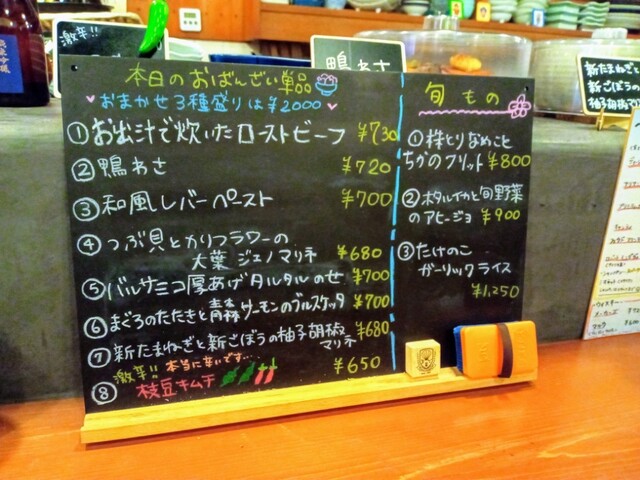 本日のおばんざい単品
おまかせ3種盛りは¥2000
①お出汁で炊いたローストビーフ ¥730
②鴨わさ ¥720
③和風レバーペースト ¥700
④つぶ貝とカリフラワーの
大葉ジェノマリネ ¥680
⑤バルサミコ厚あげタルタルのせ ¥700
⑥まぐろのたたきと青森サーモンのブルスケッタ ¥700
⑦新たまねぎと新ごぼうの柚子胡椒
マリネ ¥680
激辛!! 本当に辛いです…
⑧枝豆キムチ ¥650
旬もの
①株とりなめこと
ちかのフリット ¥800
②ホタルイカと旬野菜
のアヒージョ ¥900
③たけのこ
ガーリックライス
¥1,250
激辛!!
鴨わさ
新たまねぎと
新ごぼうの
柚子胡椒マリネ